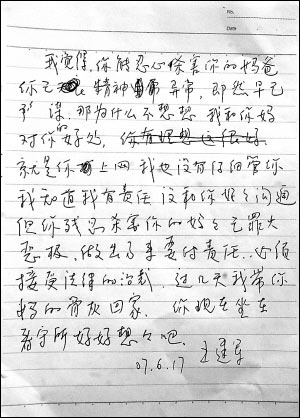 No.
Date
我觉得,你能忍心杀害你的妈爸
你已 精神 异常,即然早已
预谋,那为什么不想想我和你妈
对你的好处,你有理想这很好
就是你 上网我也没有仔细管你
我知道我有责任没和你好好沟通
但你残忍杀害你的妈妈已罪大
恶极,做出了事要付责任,必须
接受法律的治裁,过几天我带你
妈的骨灰回家.你现在坐在
看守所好好想想吧.
07.6.17